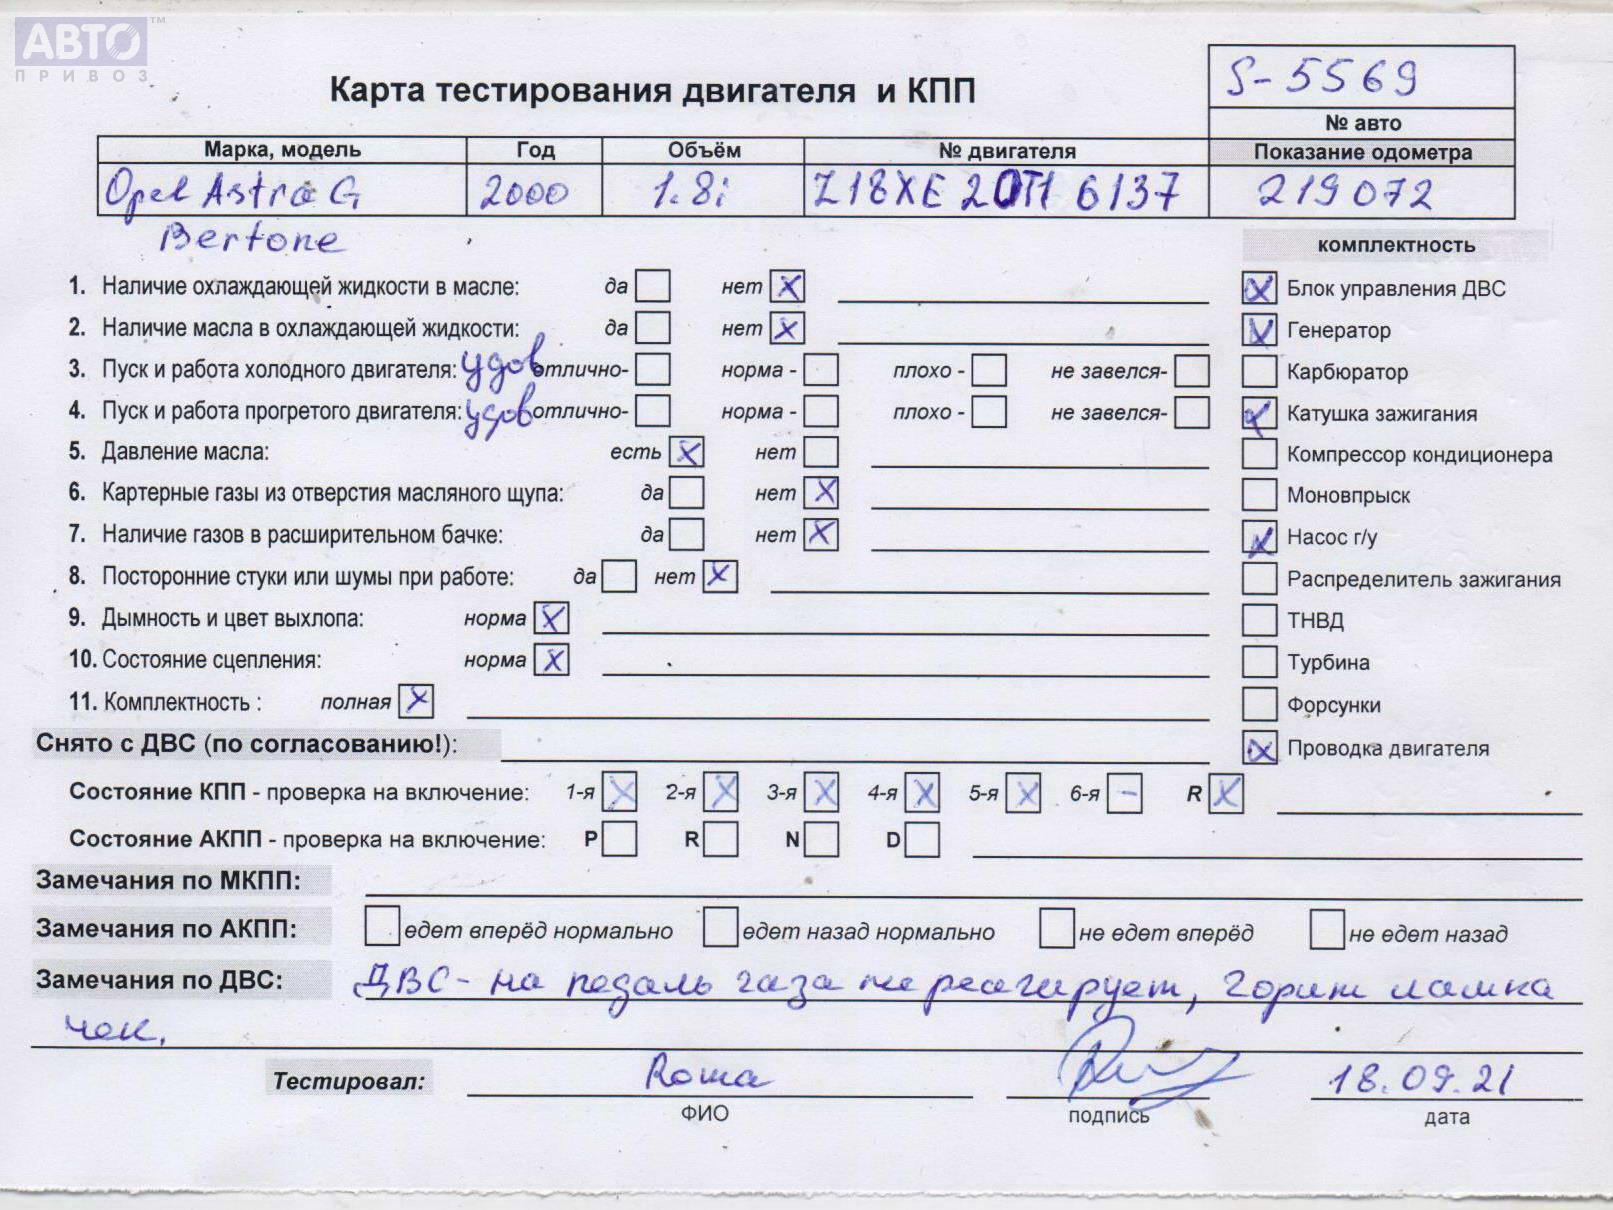 АВТО™
ПРИВОЗ
Карта тестирования двигателя и КПП
S-5569
№ авто
Марка, модель Год Объём № двигателя Показание одометра
Opel Astra G 2000 1.8i Z18XE 20TI 6137 219072
Bertone
комплектность
1. Наличие охлаждающей жидкости в масле: да нет X Блок управления ДВС X
2. Наличие масла в охлаждающей жидкости: да нет X Генератор X
3. Пуск и работа холодного двигателя: удов отлично- норма - плохо - не завелся- Карбюратор
4. Пуск и работа прогретого двигателя: удов отлично- норма - плохо - не завелся- Катушка зажигания X
5. Давление масла: есть X нет Компрессор кондиционера
6. Картерные газы из отверстия масляного щупа: да нет X Моновпрыск
7. Наличие газов в расширительном бачке: да нет X Насос г/у X
8. Посторонние стуки или шумы при работе: да нет X Распределитель зажигания
9. Дымность и цвет выхлопа: норма X ТНВД
10. Состояние сцепления: норма X Турбина
11. Комплектность : полная X Форсунки
Снято с ДВС (по согласованию!): Проводка двигателя X
Состояние КПП - проверка на включение: 1-я X 2-я X 3-я X 4-я X 5-я X 6-я – R X
Состояние АКПП - проверка на включение: P R N D
Замечания по МКПП:
Замечания по АКПП: едет вперёд нормально едет назад нормально не едет вперёд не едет назад
Замечания по ДВС: ДВС - на педаль газа не реагирует, горит лампка
чек.
Тестировал: Roma 18.09.21
ФИО подпись дата